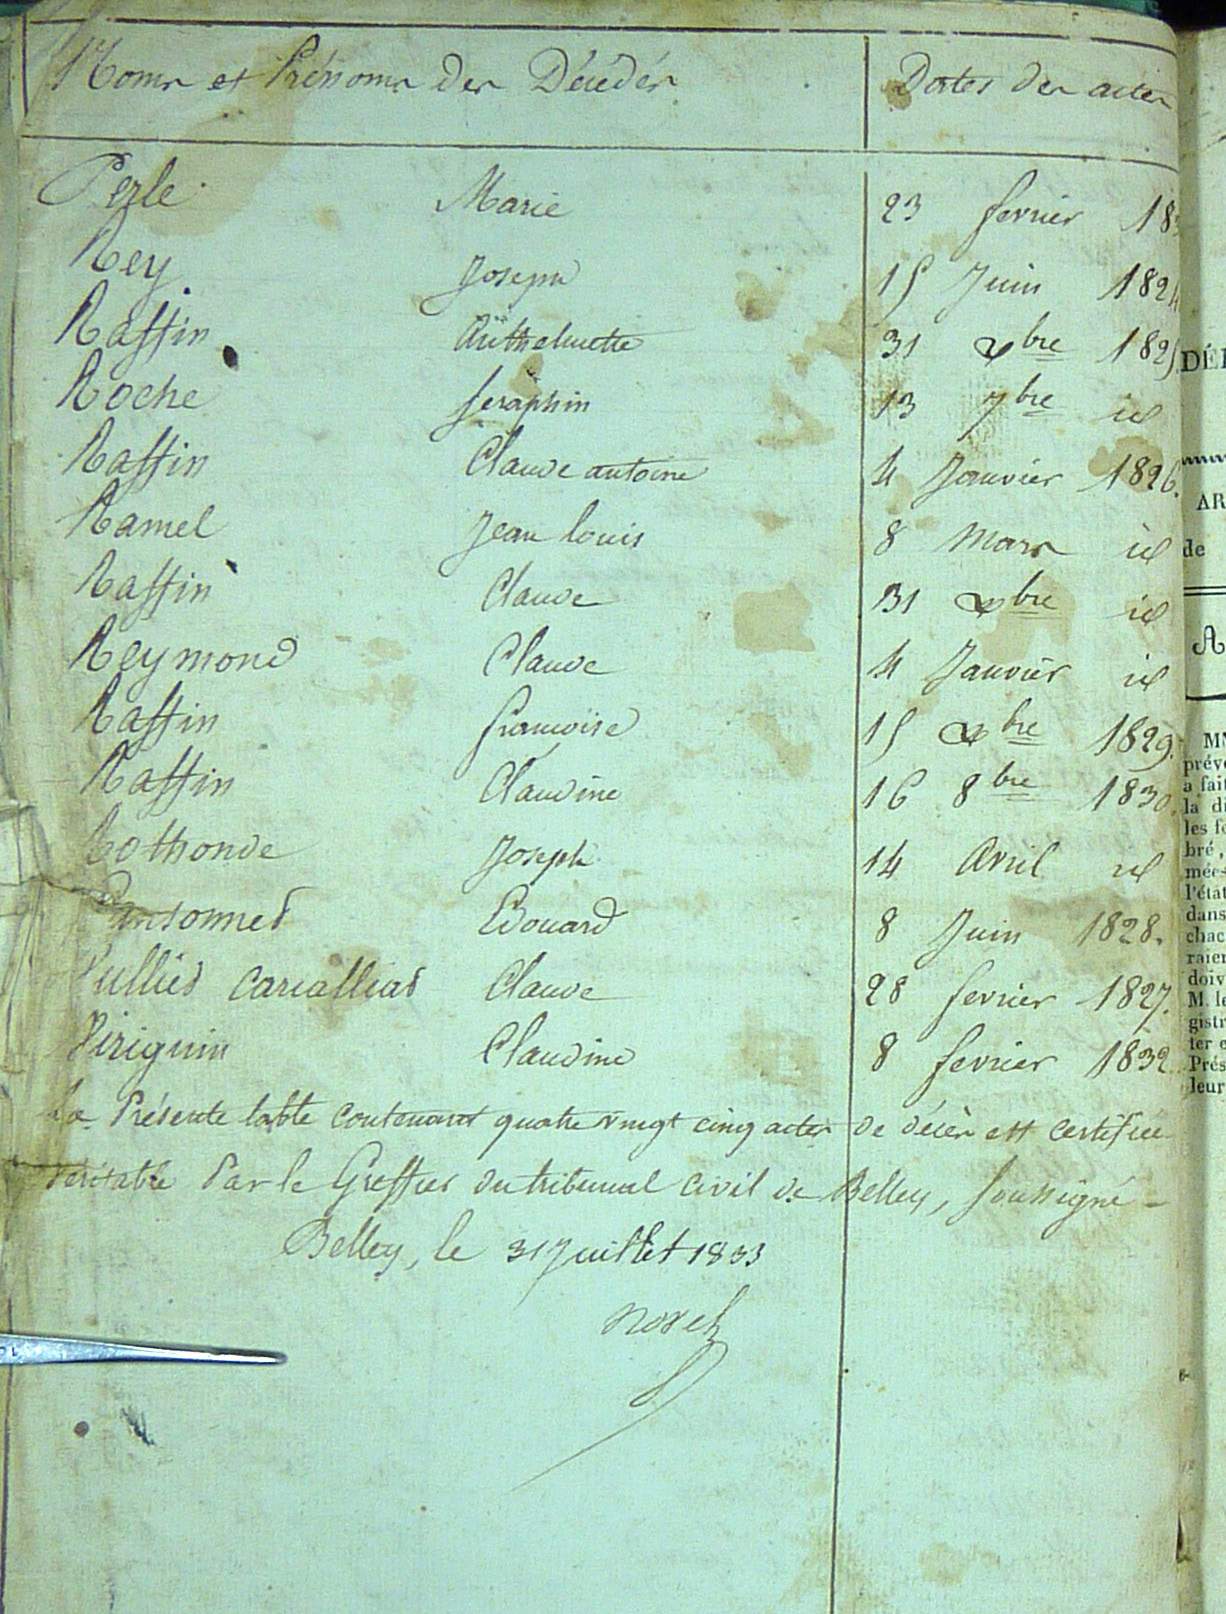 Noms et Prénoms des Décédés Dates des actes
Perle Marie 23 fevrier 183
Rey Joseph 15 Juin 1824
Raffin Anthelmette 31 xbre 1825.
Roche Seraphin 13 7bre id
Raffin Claude antoine 4 Janvier 1826.
Ramel Jean louis 8 Mars id
Raffin Claude 31 xbre id
Reymond Claude 4 Janvier id
Raffin françoise 15 xbre 1829.
Raffin Claudine 16 8bre 1830.
Rothonde Joseph 14 Avril id
Edouard 8 Juin 1828.
Claude 28 fevrier 1827.
Piriguin Claudine 8 fevrier 1832
La Présente table contenant quatre vingt cinq actes de décès est certifiée
véritable Par le Greffier du tribunal civil de Belley, soussigné -
Belley, le 31 Juillet 1833
DÉ
AR
de
A
MM
prév
a fait
la di
les fo
bré,
mée
l'état
dans
chac
raien
doiv
M. le
gistr
ter e
Prés
leur